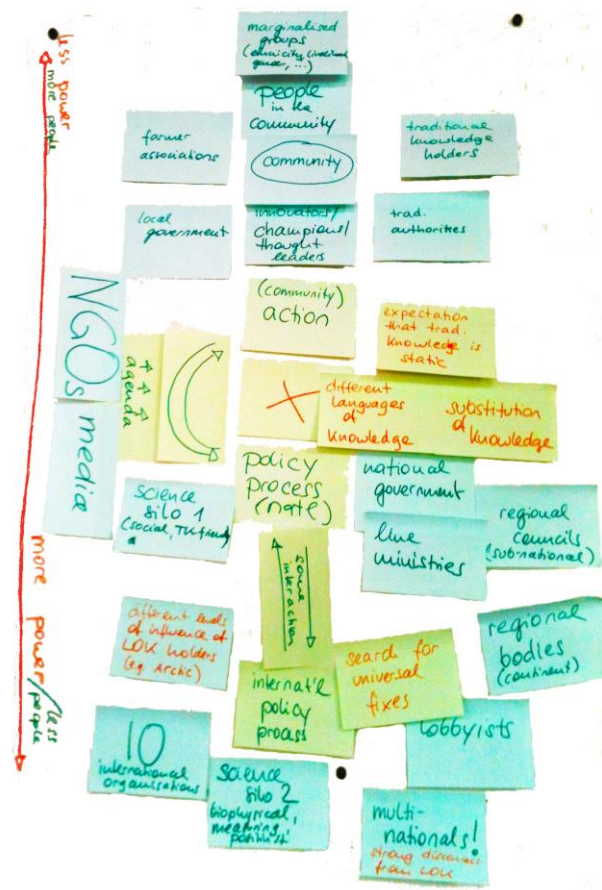 less power
more people
marginalised
groups
(ethnicity, livelihood,
gender, ...)
people
in the
community
farmer
associations
community
traditional
knowledge
holders
local
government
innovators/
champions/
thought
leaders
trad.
authorities
NGOs
media
agenda
(community)
action
expectation
that trad.
knowledge is
static
different
languages
of
knowledge
substitution
of
knowledge
policy
process
(nat'l)
national
government
science
silo 1
(social, TK friendly
line
ministries
regional
councils
(sub-national)
some
interaction
more power/less
people
different levels
of influence of
LOK holders
(e.g. Arctic)
search for
universal
fixes
regional
bodies
(continent)
internat'l
policy
process
lobbyists
IO
international
organisations
science
silo 2
biophysical,
measuring,
positivist
multi-
nationals!
strong disconnect
from LOK